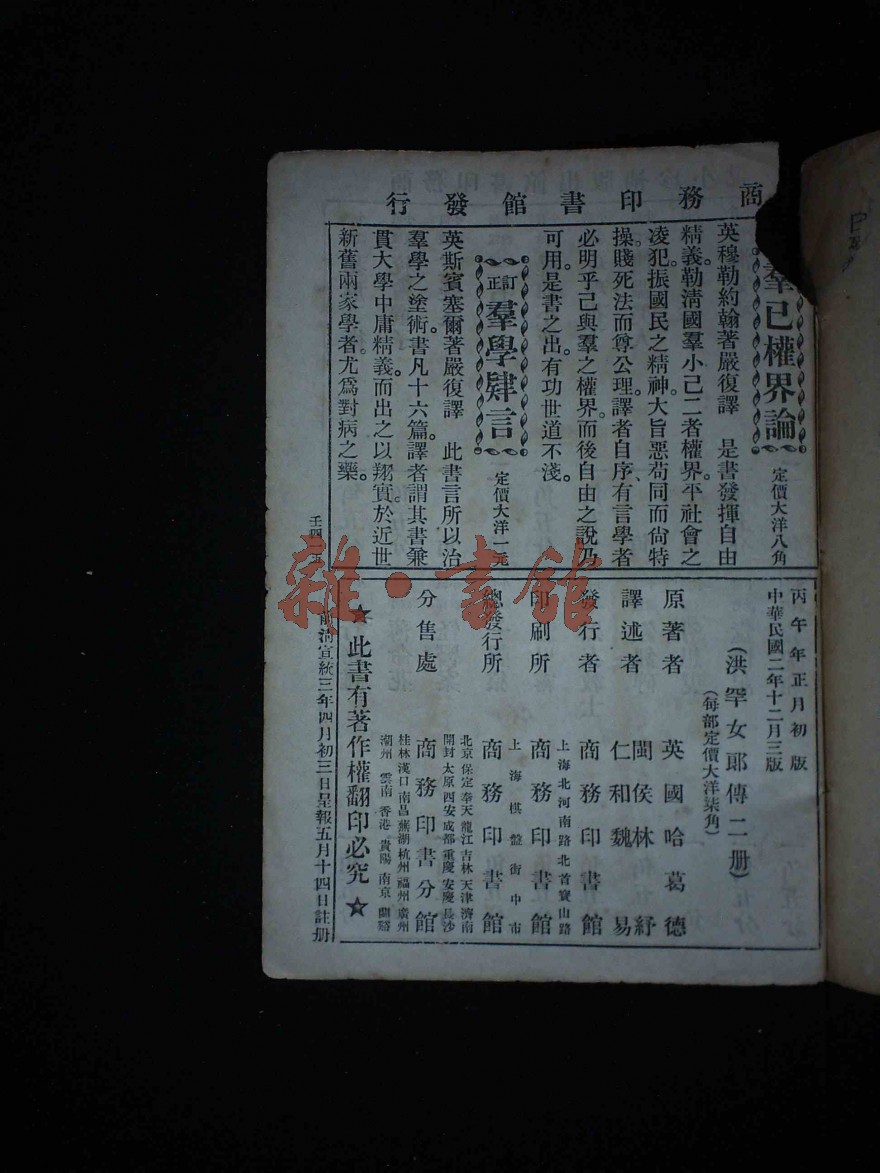 商務印書館發行
羣己權界論
定價大洋八角
英穆勒約翰著嚴復譯 是書發揮自由
精義。勒淸國羣小己二者權界。平社會之
凌犯。振國民之精神。大旨惡苟同而尙特
操。賤死法而尊公理。譯者自序、有言學者
必明乎己與羣之權界。而後自由之說乃
可用。是書之出。有功世道不淺。
訂正 羣學肄言
定價大洋一元
英斯賓塞爾著嚴復譯 此書言所以治
羣學之塗術。書凡十六篇。譯者謂其書兼
貫大學中庸精義。而出之以翔實。於近世
新舊兩家學者。尤爲對病之藥。
丙午年正月初版
中華民國二年十二月三版
(洪罕女郎傳二册)
(每部定價大洋柒角)
原著者 英國哈葛德
譯述者 閩侯林紓
仁和魏易
發行者 商務印書館
上海北河南路北首寶山路
印刷所 商務印書館
上海棋盤街中市
總發行所 商務印書館
北京保定奉天龍江吉林天津濟南
開封太原西安成都重慶安慶長沙
分售處 商務印書分館
桂林漢口南昌蕪湖杭州福州廣州
潮州 雲南 香港 貴陽 南京 蘭谿
★此書有著作權翻印必究☆
前淸宣統三年四月初三日呈報五月十四日註册
雜·書館